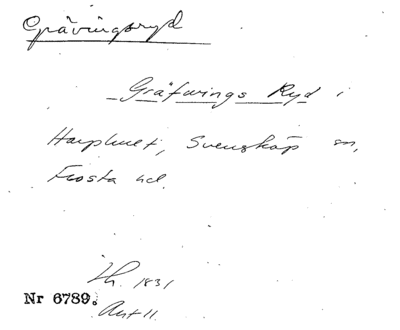 Grävingsryd
Gräfwings Ryd i
Harphult, Svensköp sn,
Frosta hd.
1831
Nr 6789.
Akt 11.